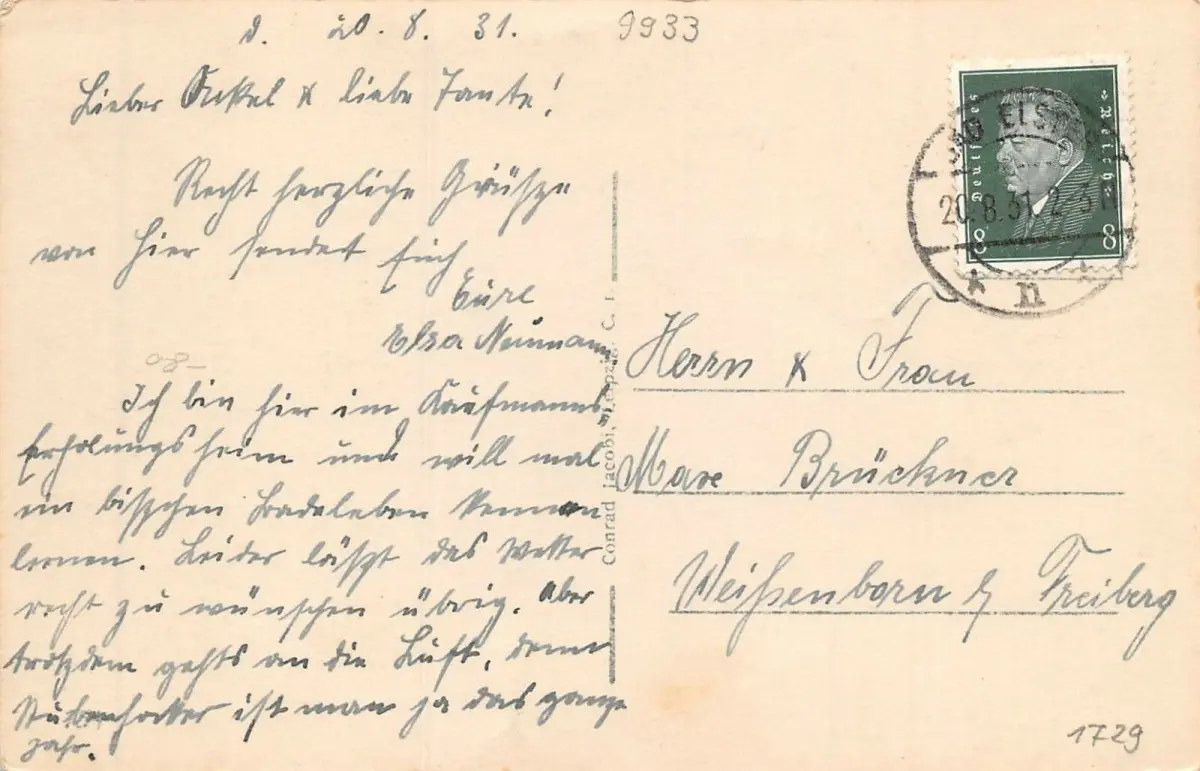 d. 20. 8. 31.
9933
Lieber Onkel & liebe Tante!
Recht herzliche Grüsze
von hier sendet Euch
Eure
Elsa Neumann
Ich bin hier im Kaufmanns-
Erholungsheim und will mal
ein bisschen Badeleben kennen
lernen. Leider läszt das Wetter
recht zu wünschen übrig. Aber
trotzdem gehts an die Luft, denn
Stubenhocker ist man ja das ganze
Jahr.
Conrad Jacobi, Leipzig C. 1
Deutsches Reich
8 8
BAD ELSTER
20.8.31. 2-3 N
* n *
Herrn & Frau
Max Brückner
Weißenborn b/ Freiberg
1729